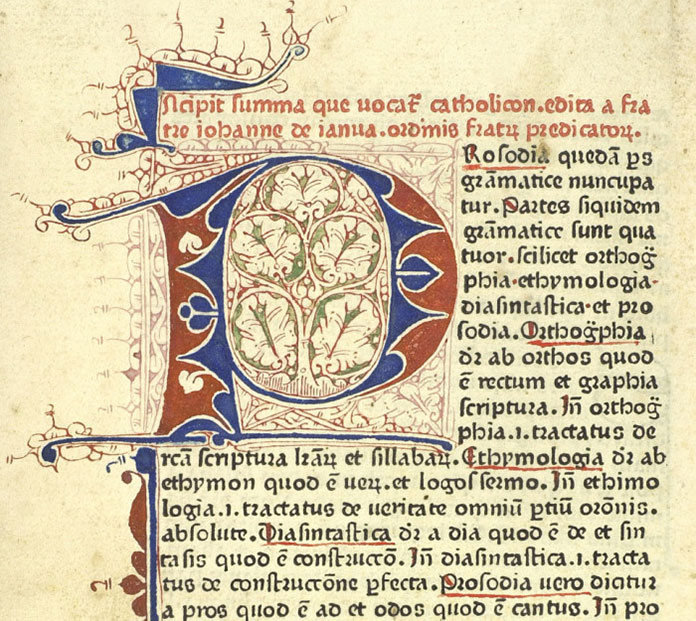 Incipit summa que uocat᷑ catholicon.edita a fra
tre iohanne de ianua.ordinis fratꝝ predicatoꝝ.
PRosodia quedã p̱s
grãmatice nuncupa
tur.Partes siquidem
grãmatice sunt qua
tuor.scilicet orthog̈
phia.ethymologia.
diasintastica.et pro
sodia.Orthog̈phia
dr̃ ab orthos quod
ẽ rectum et graphia
scriptura.Iñ orthog̈
phia.ı.tractatus de
rcã scriptura lrãꝝ et sillabaꝝ.Ethymologia dr̃ ab
ethymon quod ẽ ueꝝ.et logos sermo.Iñ ethimo
logia.ı.tractatus de ueritate omniũ ꝑtiũ orõnis.
absolute.Diasintastica dr̃ a dia quod ẽ de et sin
tasis quod ẽ constructõ.Iñ diasintastica.ı.tracta
tus de constructõne ꝑfecta.Prosodia uero dicitur
a pros quod ẽ ad et odos quod ẽ cantus.Iñ pro